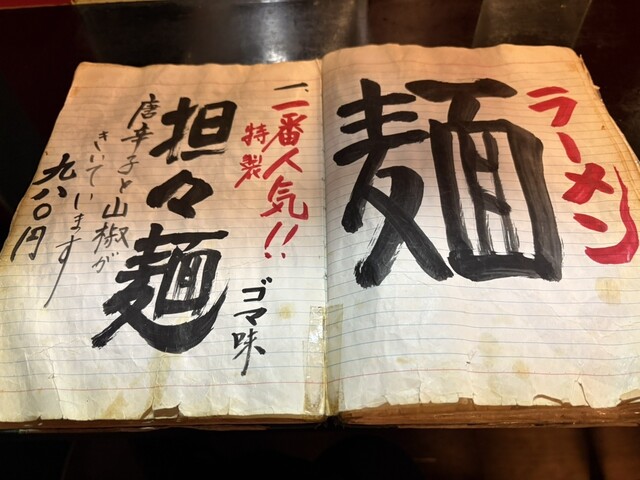 ラーメン
麺
一、一番人気!!
特製
ゴマ味
担々麺
唐辛子と山椒が
きいています
九八〇円